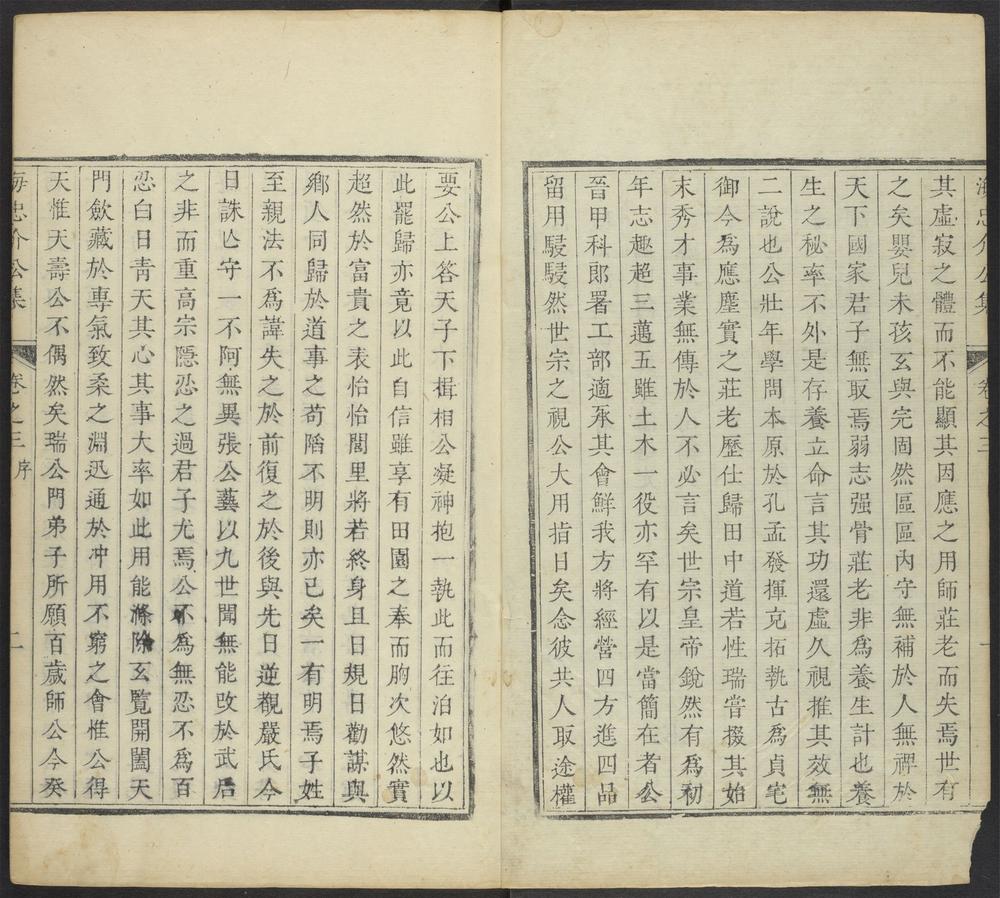 海忠介公集 卷之三 一
其虛寂之體而不能顯其因應之用師莊老而失焉世有
之矣嬰兒未孩玄與完固然區區內守無補於人無裨於
天下國家君子無取焉弱志强骨莊老非爲養生計也養
生之秘率不外是存養立命言其功還虛久視推其效無
二說也公壯年學問本原於孔孟發揮克拓執古爲貞宅
御今爲應塵實之莊老歷仕歸田中道若性瑞嘗掇其始
末秀才事業無傳於人不必言矣世宗皇帝銳然有爲初
年志趣超三邁五雖土木一役亦罕有以是當簡在者公
晉甲科郎署工部適承其會鮮我方將經營四方進四品
留用駸駸然世宗之視公大用指日矣念彼共人取途權
要公上答天子下揖相公凝神抱一執此而往泊如也以
此罷歸亦竟以此自信雖享有田園之奉而胸次悠然實
超然於富貴之表怡怡閭里將若終身且日規日勸謀與
鄉人同歸於道事之苟陷不明則亦已矣一有明焉子姓
至親法不爲諱失之於前復之於後與先日逆覩嚴氏今
日誅亾守一不阿無異張公藝以九世聞無能改於武后
之非而重高宗隱忍之過君子尤焉公不爲無忍不爲百
忍白日靑天其心其事大率如此用能滌除玄覽開闔天
門歛藏於專氣致柔之淵迅通於冲用不窮之會惟公得
天惟天壽公不偶然矣瑞公門弟子所願百歲師公今癸
海忠介公集 卷之三 序 二